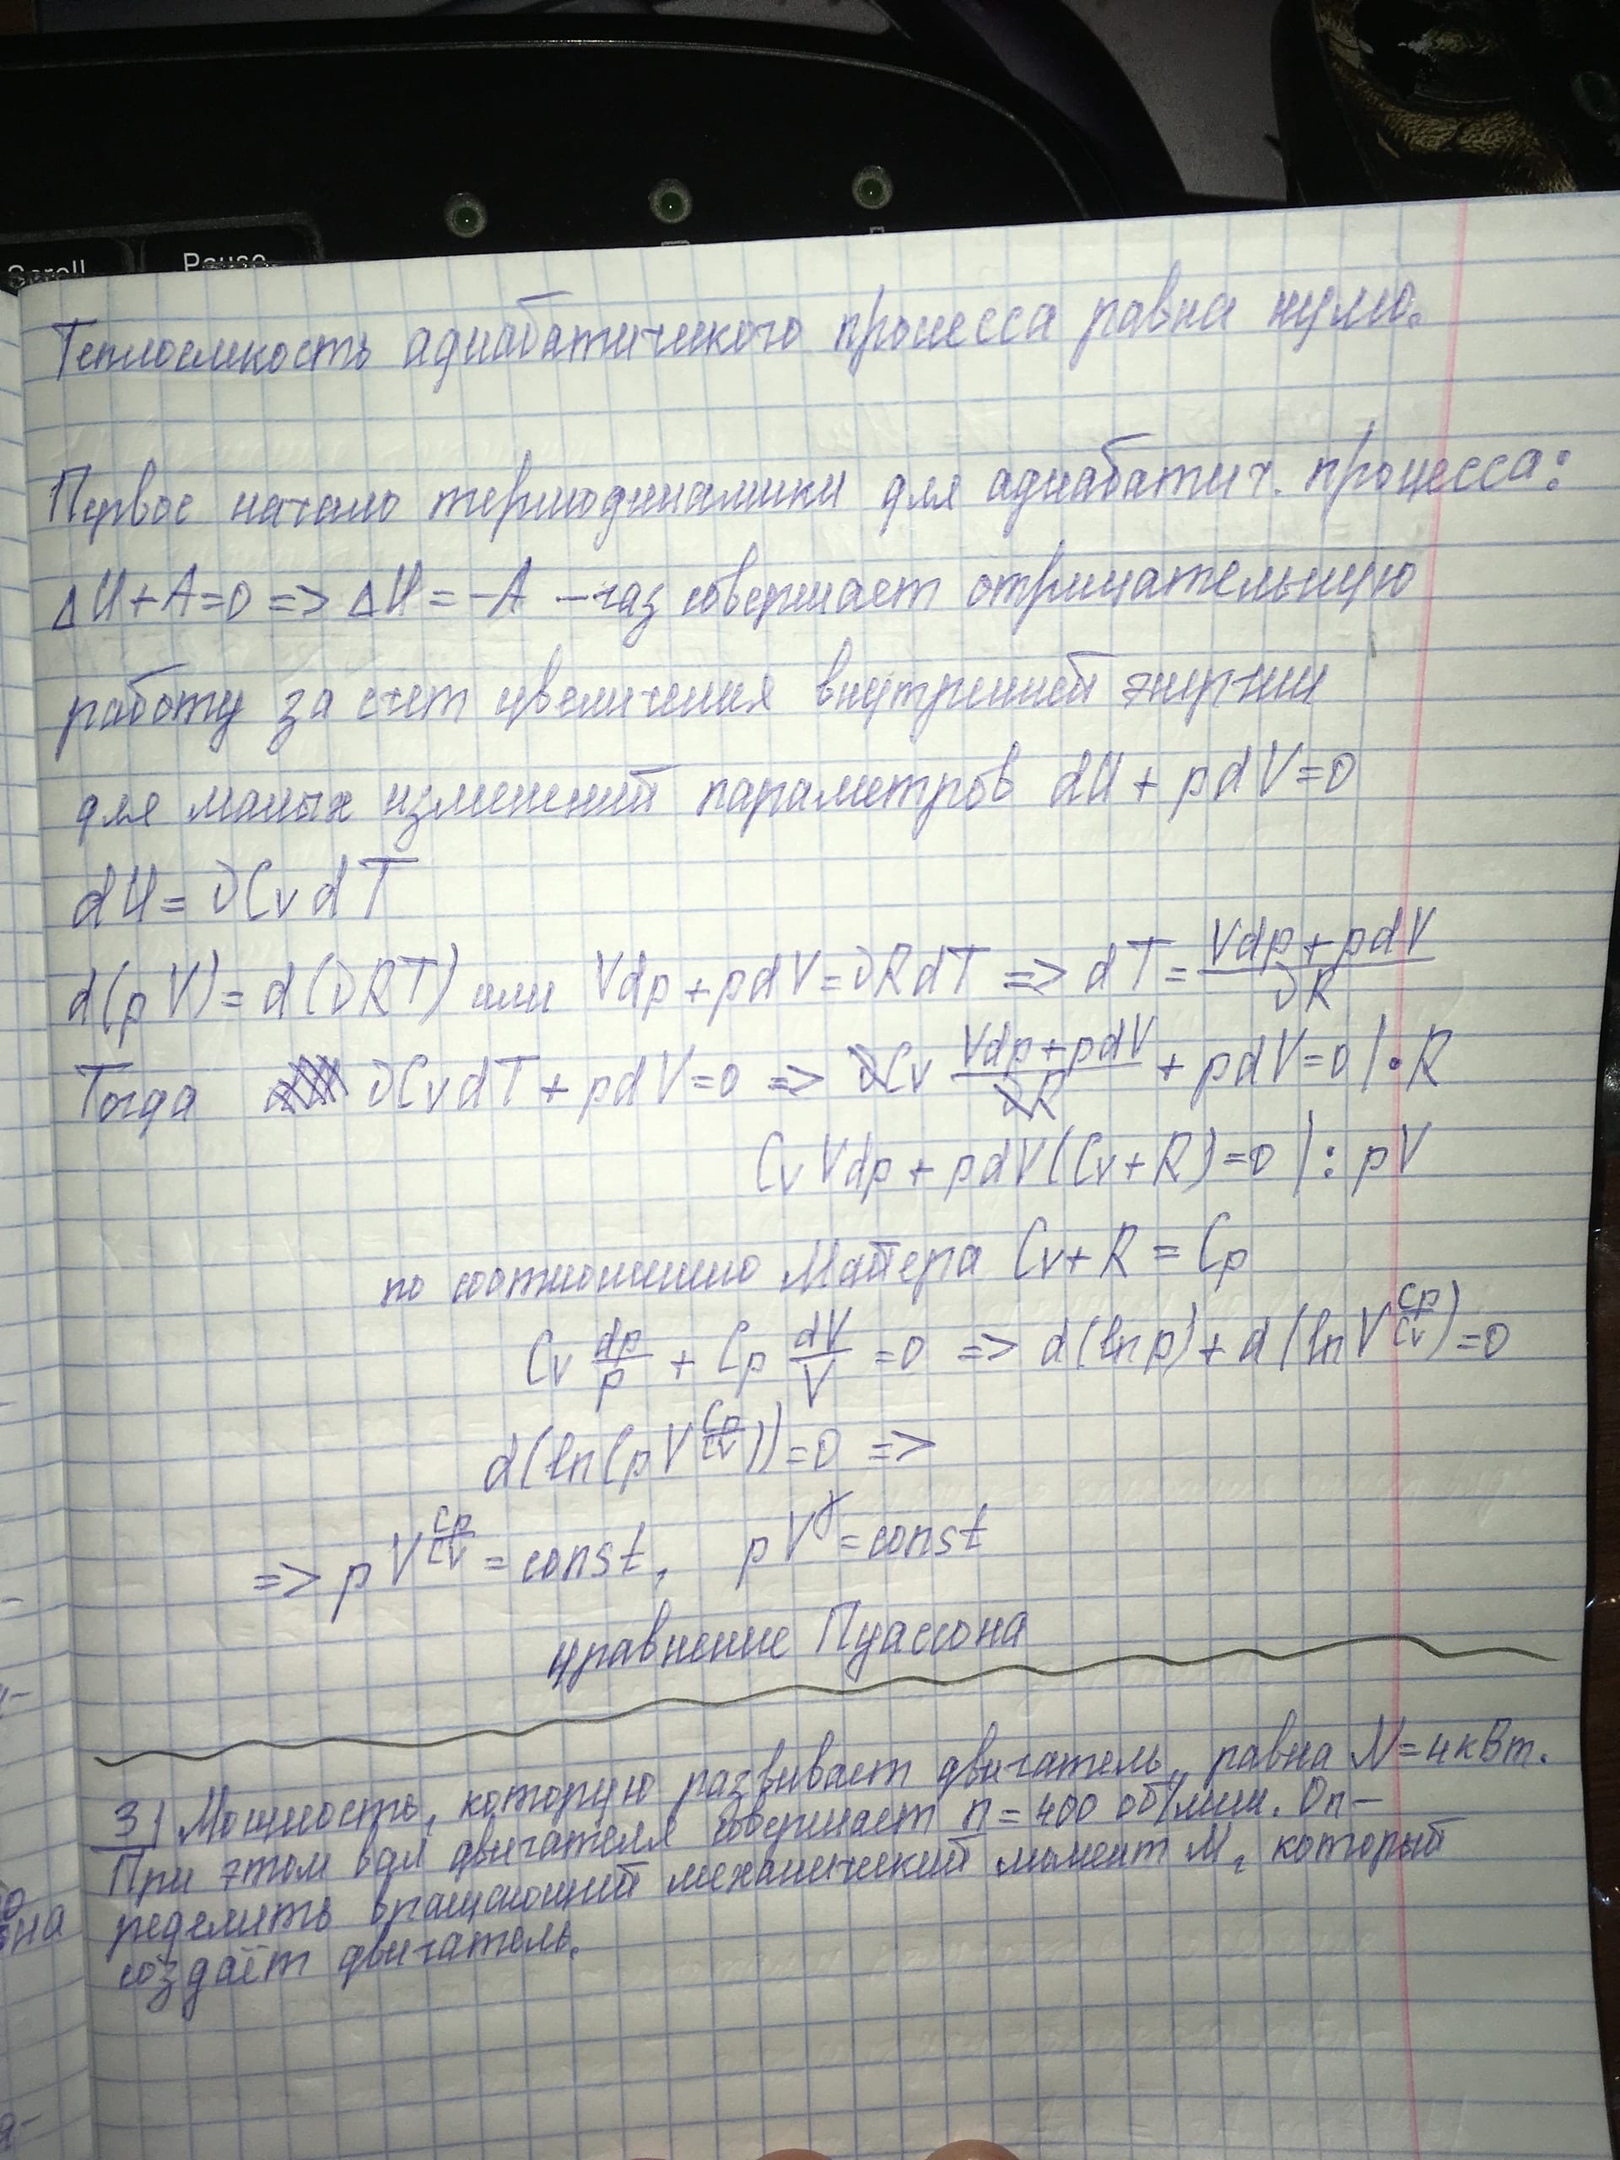 Scroll
Pause
Теплоемкость адиабатического процесса равна нулю.
Первое начало термодинамики для адиабатич. процесса:
ΔU+A=0 => ΔU=-A – газ совершает отрицательную
работу за счет увеличения внутренней энергии
для малых изменений параметров dU+pdV=0
dU=νCvdT
d(pV)=d(νRT) или Vdp+pdV=νRdT => dT=(Vdp+pdV)/νR
Тогда νCvdT+pdV=0 => νCv (Vdp+pdV)/νR + pdV=0 |·R
CvVdp+pdV(Cv+R)=0 |: pV
по соотношению Майера Cv+R=Cp
Cv dp/p + Cp dV/V =0 => d(lnp)+d(lnV^(Cp/Cv))=0
d(ln(pV^(Cp/Cv)))=0 =>
=> pV^(Cp/Cv)=const, pV^γ=const
уравнение Пуассона
3) Мощность, которую развивает двигатель, равна N=4кВт.
При этом вал двигателя совершает n=400 об/мин. Оп-
ределить вращающий механический момент M, который
создаёт двигатель.